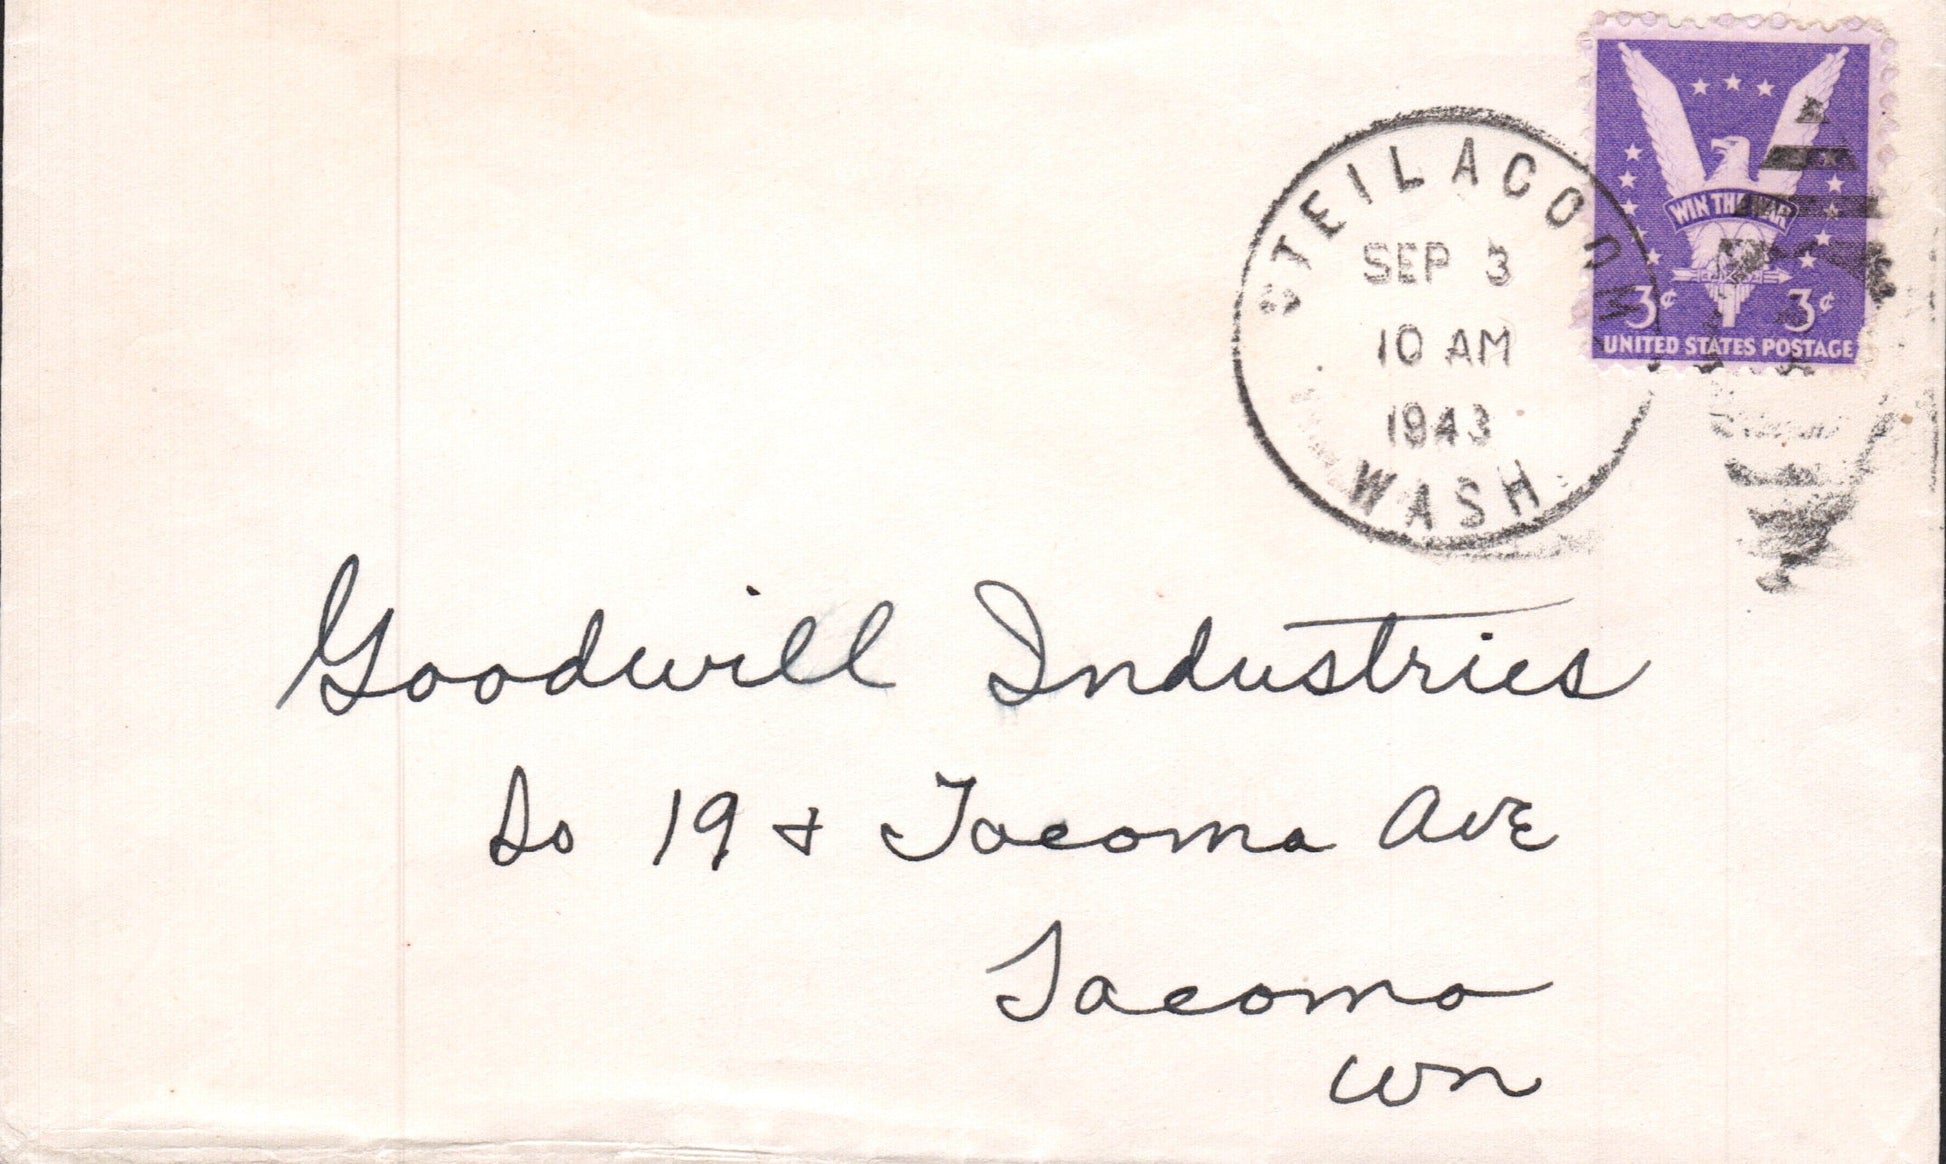 WIN THE WAR
3¢ 3¢
UNITED STATES POSTAGE
STEILACOOM
SEP 3
10 AM
1943
WASH.
Goodwill Industries
So 19 + Tacoma Ave
Tacoma
Wn